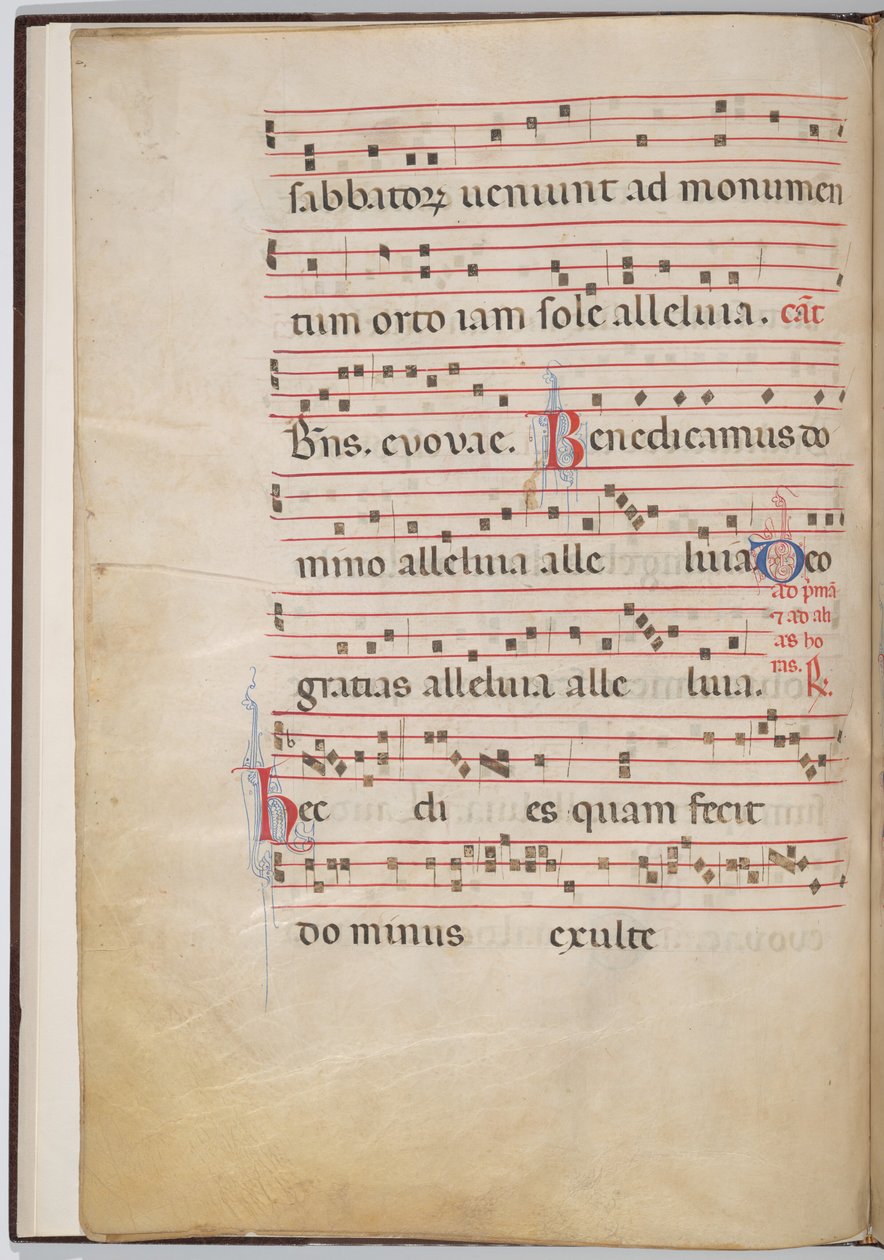 sabbatoꝝ ueniunt ad monumen
tum orto iam sole alleluia. cāt
Bn̄s. evovae. Benedicamus do
mino alleluia alle luia Deo
ad p̄mā
⁊ ad ali
as ho
ras. ℟.
gratias alleluia alle luia.
hec di es quam fecit
do minus exulte